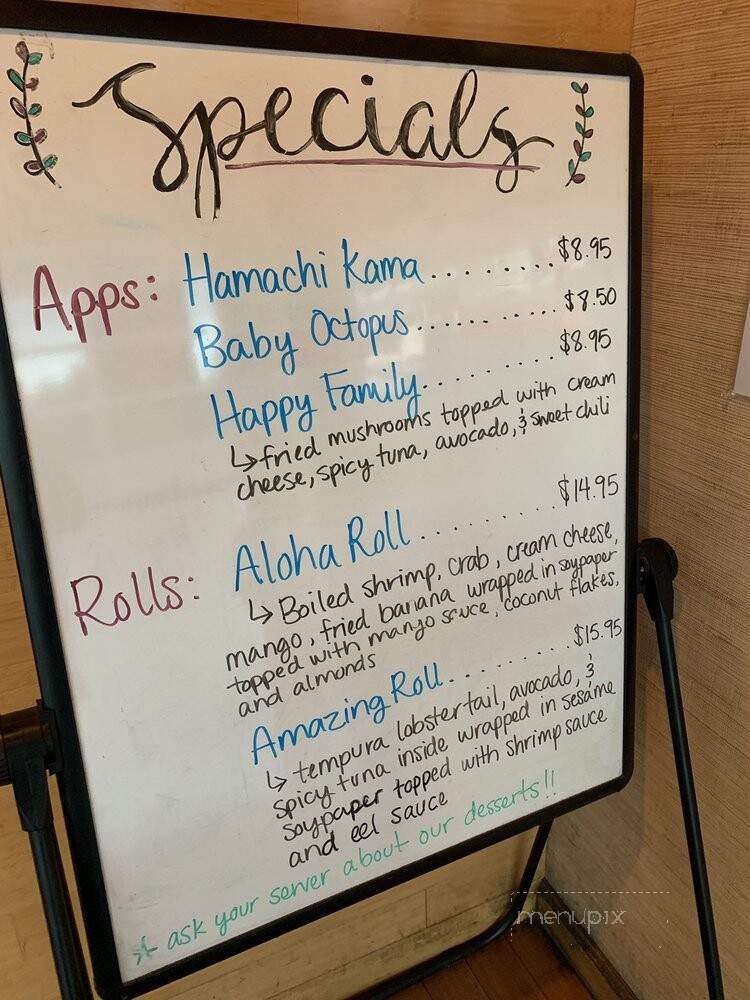 Specials
Apps: Hamachi Kama.........$8.95
Baby Octopus...........$8.50
Happy Family..........$8.95
↳fried mushrooms topped with cream
cheese, spicy tuna, avocado, & sweet chili
Rolls: Aloha Roll..........$14.95
↳ Boiled shrimp, crab, cream cheese,
mango, fried banana wrapped in soypaper
topped with mango sauce, coconut flakes,
and almonds
Amazing Roll.........$15.95
↳ tempura lobster tail, avocado, &
spicy tuna inside wrapped in sesame
soypaper topped with shrimp sauce
and eel sauce
* ask your server about our desserts!!
menupix